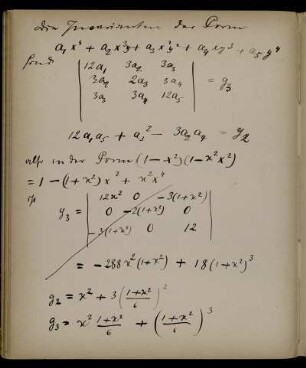 Die Invarianten der Form
a₁x⁴ + a₂x³y + a₃x²y² + a₄xy³ + a₅y⁴
sind
| 12a₁ 3a₂ 2a₃ |
| 3a₂ 2a₃ 3a₄ | = g₃
| 2a₃ 3a₄ 12a₅ |
12a₁a₅ + a₃² − 3a₂a₄ = g₂
also in der Form (1−x²)(1−κ²x²)
= 1 − (1+κ²)x² + κ²x⁴
ist
| 12κ² 0 −2(1+κ²) |
g₃ = | 0 −2(1+κ²) 0 |
| −2(1+κ²) 0 12 |
= −288κ²(1+κ²) + 18(1+κ²)³
g₂ = κ² + 3((1+κ²)/6)²
g₃ = κ² (1+κ²)/6 + ((1+κ²)/6)³